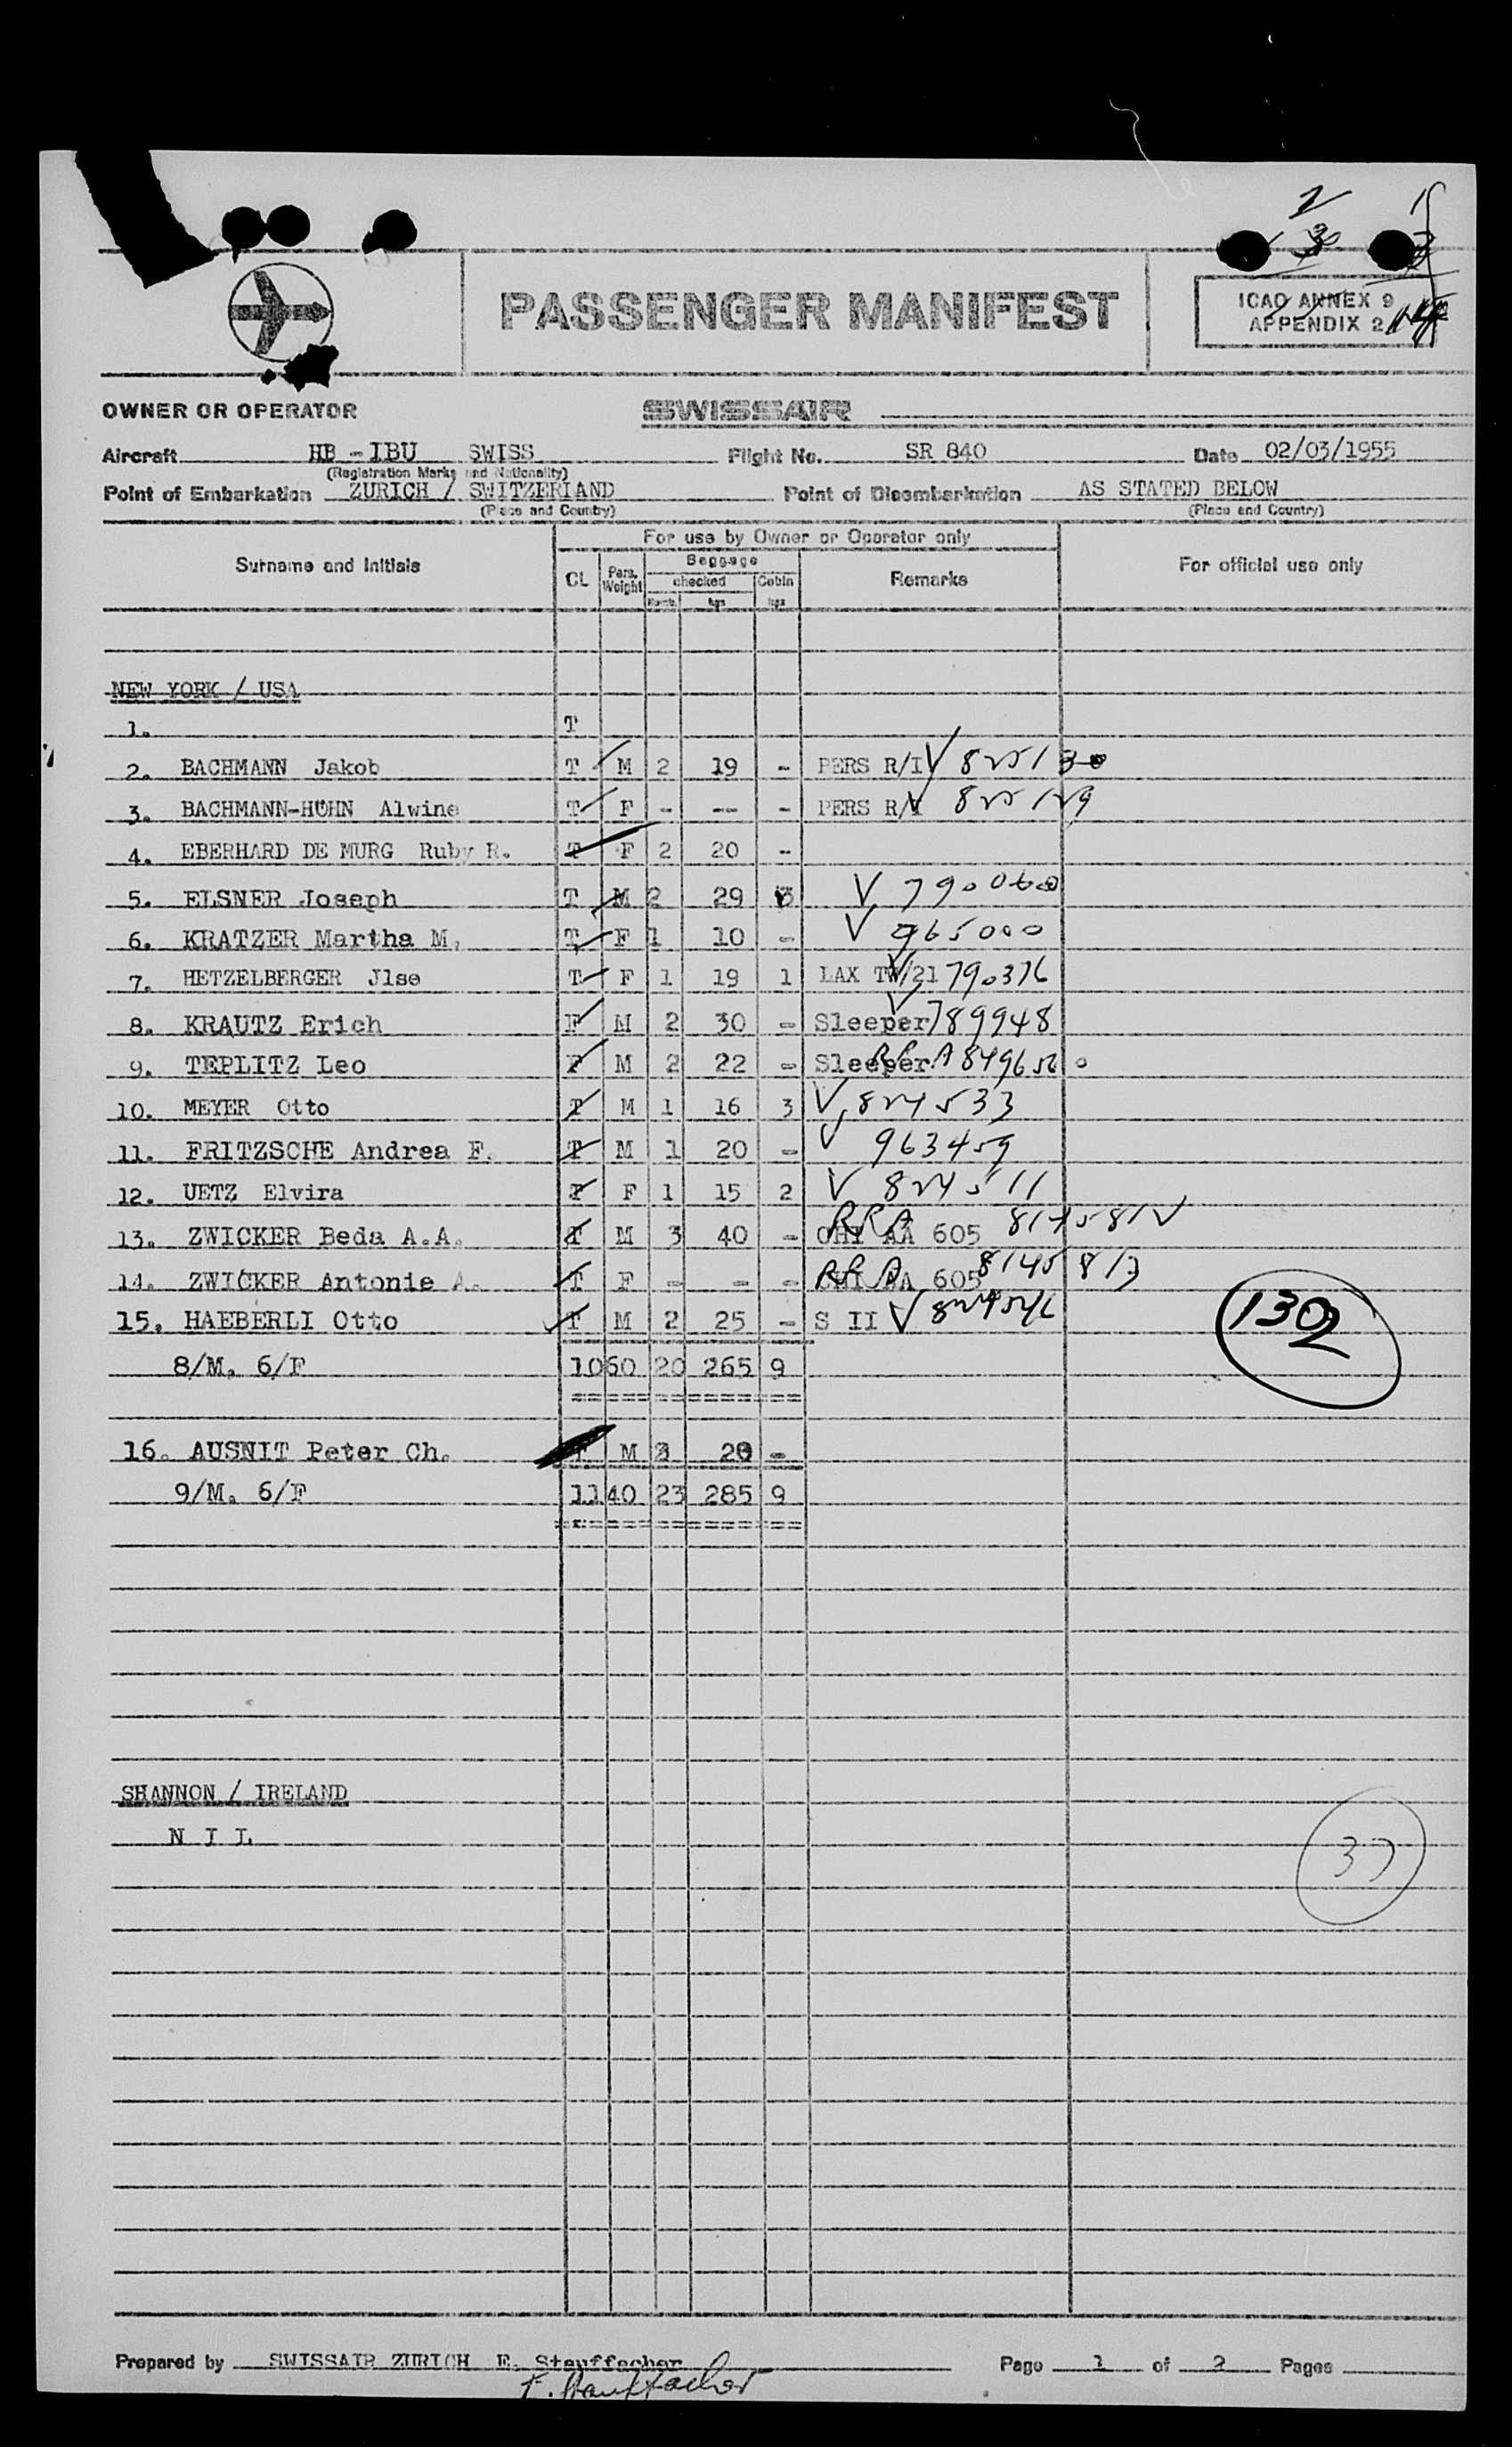 PASSENGER MANIFEST
ICAO ANNEX 9
APPENDIX 2
OWNER OR OPERATOR SWISSAIR
Aircraft HB - IBU SWISS Flight No. SR 840 Date 02/03/1955
(Registration Marks and Nationality)
Point of Embarkation ZURICH / SWITZERLAND Point of Disembarkation AS STATED BELOW
(Place and Country) (Place and Country)
For use by Owner or Operator only
Surname and Initials CL Pers. Weight Baggage Remarks For official use only
checked Cabin
Numb. kgs kgs
NEW YORK / USA
1. T
2. BACHMANN Jakob T M 2 19 - PERS R/I V 825130
3. BACHMANN-HÜHN Alwine T F - -- - PERS R/I 825129
4. EBERHARD DE MURG Ruby R. T F 2 20 -
5. ELSNER Joseph T M 2 29 3 V 790060
6. KRATZER Martha M. T F 1 10 - V 965000
7. HETZELBERGER Jlse T F 1 19 1 LAX TW/21 V 790376
8. KRAUTZ Erich F M 2 30 - Sleeper V 789948
9. TEPLITZ Leo F M 2 22 - Sleeper
10. MEYER Otto T M 1 16 3 V 824533
11. FRITZSCHE Andrea F. T M 1 20 - V 963459
12. UETZ Elvira T F 1 15 2 V 824511
13. ZWICKER Beda A.A. T M 3 40 - CHI AA 605 RRA 8145812
14. ZWICKER Antonie A. T F - - - CHI AA 605 RRA 8145813
15. HAEBERLI Otto T M 2 25 - S II V 824546
1302
8/M. 6/F 1060 20 265 9
16. AUSNIT Peter Ch. M 3 20 -
9/M. 6/F 1140 23 285 9
SHANNON / IRELAND
N I L
37
Prepared by SWISSAIR ZURICH E. Stauffacher Page 1 of 2 Pages
E. Stauffacher